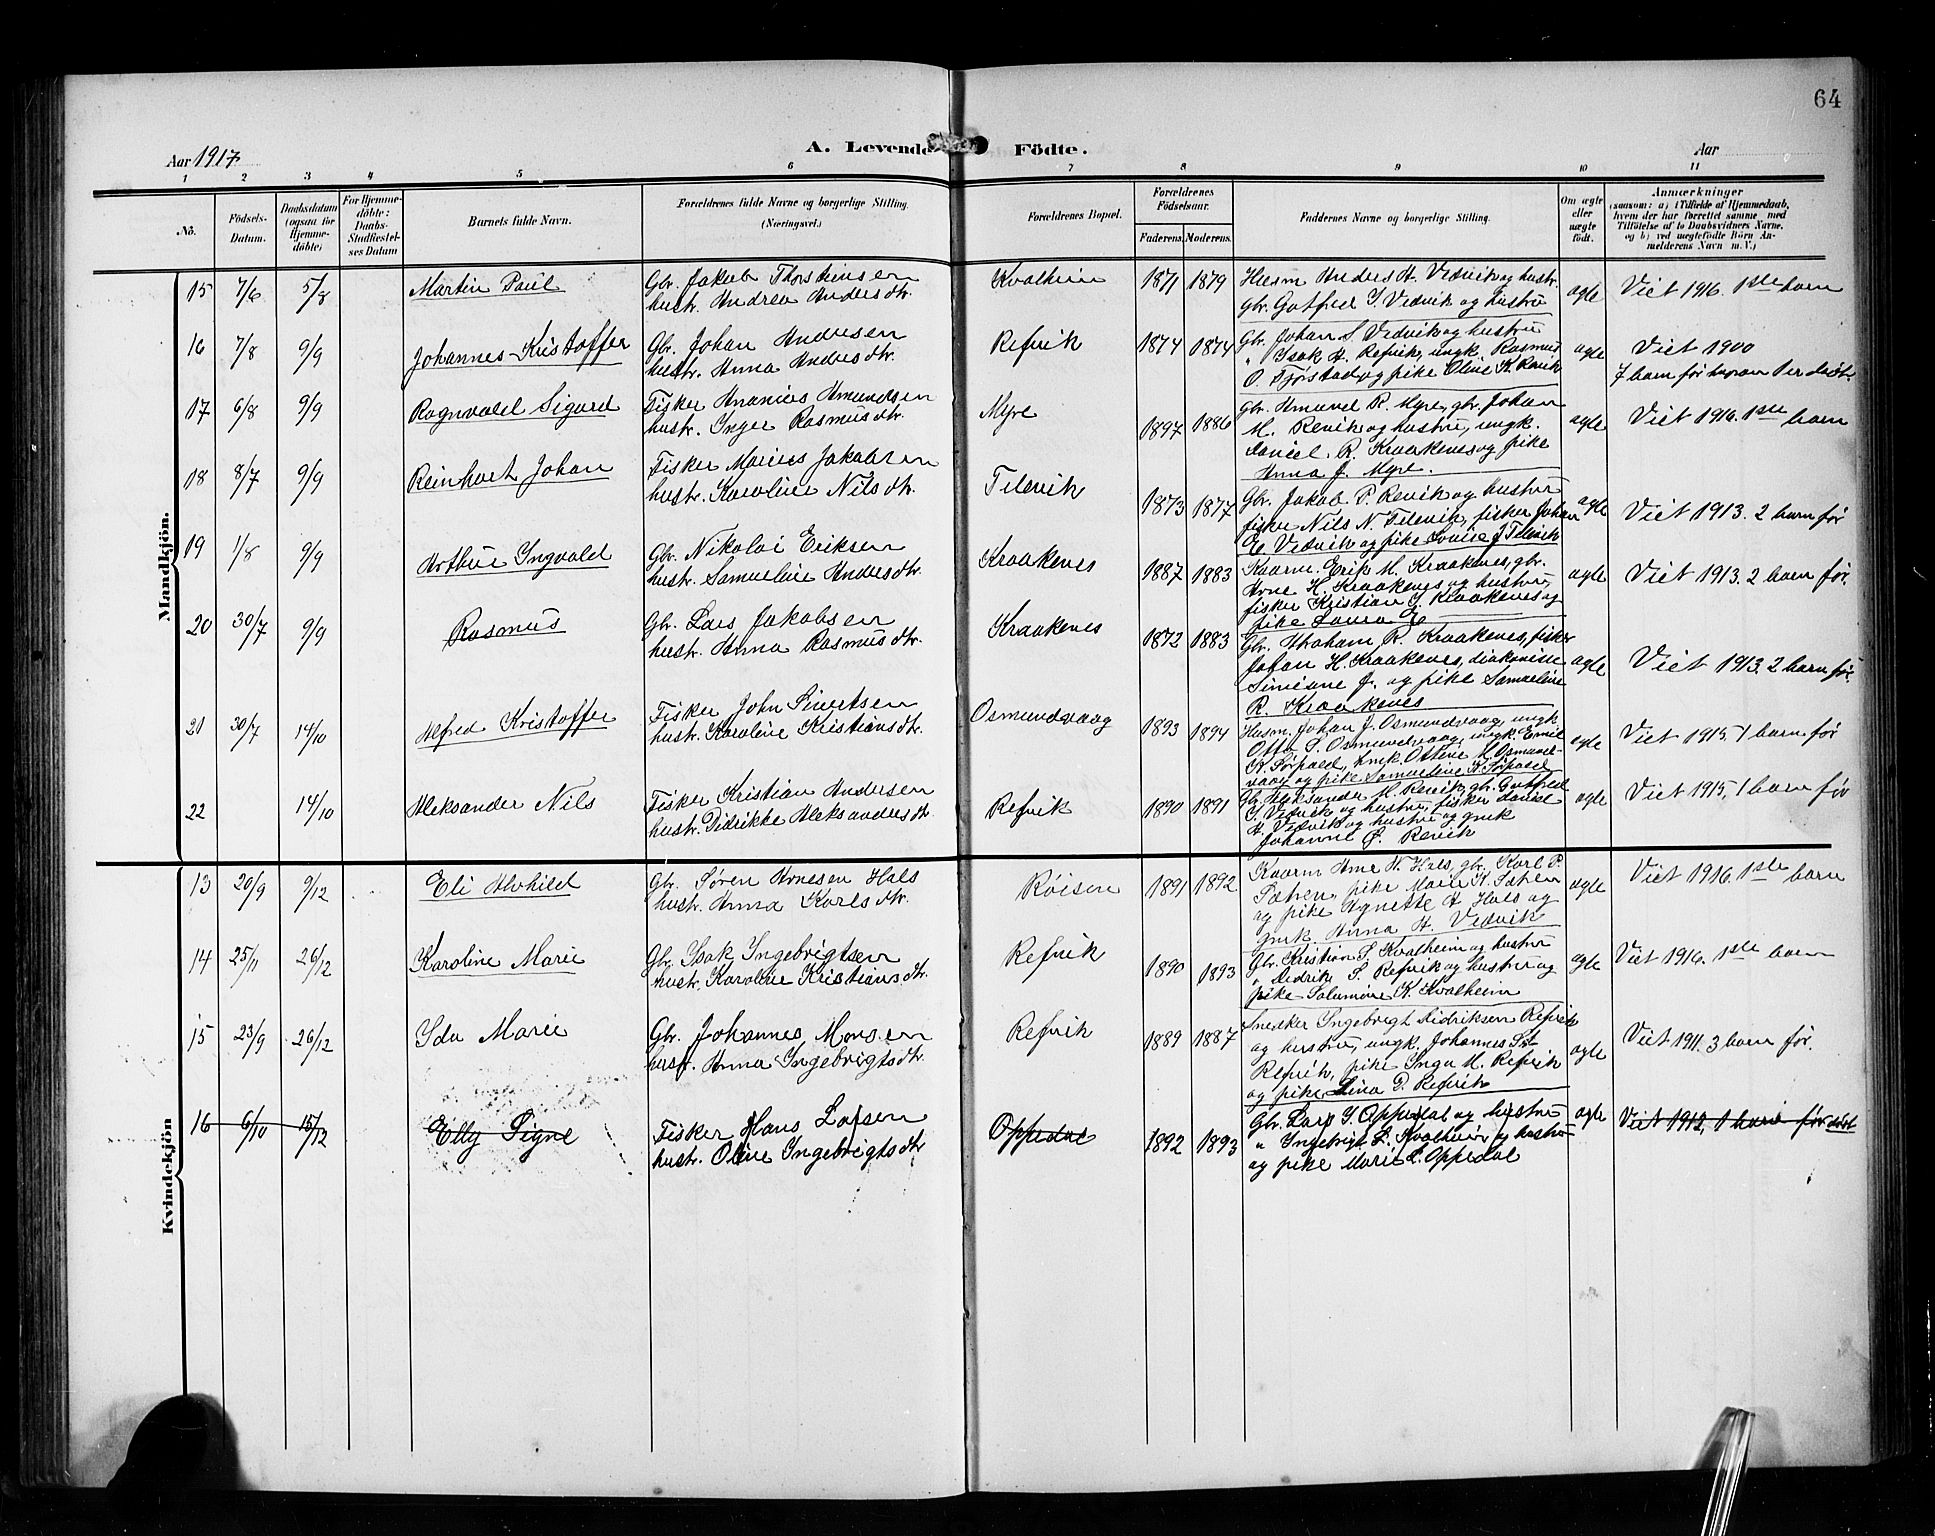 64
Aar 1917
A. Levende Födte.
Aar
1 2 3 4 5 6 7 8 9 10 11
No.
Födsels-Datum.
Daabsdatum (ogsaa for Hjemme-döbte)
For Hjemme-döbte: Daabs-Stadfæstel-ses Datum
Barnets fulde Navn.
Forældrenes fulde Navne og borgerlige Stilling. (Næringsvei.)
Forældrenes Bopæl.
Forældrenes Födselsaar.
Faderens. Moderens.
Faddernes Navne og borgerlige Stilling.
Om ægte eller uægte födt.
Anmærkninger
(saasom: a) i Tilfælde af Hjemmedaab, hvem der har forrettet samme, med Tilföielse af to Daabsvidners Navne, og b) ved uægtefödte Börn An-melderens Navn m. V.)
Mandkjön.
15 7/6 5/8 Martin Paul
Gbr. Jakob Thorstensen
hustr. Andrea Andersdtr.
Kvalheim 1871 1879
Husm Anders A. Vedvik og hustr.
gbr. Gotfred S. Vedvik og hustru
ægte Viet 1916. 1ste barn
16 7/8 9/9 Johannes Kristoffer
Gbr. Johan Andersen
hustr. Anna Andersdtr.
Refvik 1874 1874
Gbr. Johan S. Vedvik og hustru
" Isak A. Refvik, ungk. Rasmus
O. Tjørstad og pike Oline K. Revik
ægte Viet 1900
7 barn før hvoraf 1 er dødt.
17 6/8 9/9 Ragnvald Sigurd
Fisker Ananias Amundsen
hustr. Inger Rasmusdtr.
Myre 1897 1886
Gbr. Amund R. Myre, gbr. Johan
M. Revik og hustru, ungk.
Daniel R. Kraakenes og pike
Anna J. Myre.
ægte Viet 1916. 1ste barn
18 8/7 9/9 Reinhart Johan
Fisker Marius Jakobsen
hustr. Karoline Nilsdtr.
Tilevik 1873 1877
Gbr. Jakob P. Revik og hustru
fisker Nils N. Tilevik, fisker Johan
E. Vedvik og pike Lovise J Tilevik
ægte Viet 1913. 2 barn før
19 1/8 9/9 Arthur Ingvald
Gbr. Nikolai Eriksen
hustr. Samueline Andersdtr.
Kraakenes 1887 1883
Kaarm. Erik M. Kraakenes, gbr.
Arne H. Kraakenes og hustru,
fisker Kristian J. Kraakenes og
pike Laura E.
ægte Viet 1913. 2 barn før.
20 30/7 9/9 Rasmus
Gbr. Lars Jakobsen
hustr. Anna Rasmusdtr.
Kraakenes 1872 1883
Gbr. Abraham R. Kraakenes, fisker
Johan H. Kraakenes, diakonisse
Simione J. og pike Samueline
R. Kraakenes
ægte Viet 1913. 2 barn før.
21 30/7 14/10 Alfred Kristoffer
Fisker John Sivertsen
hustr. Karoline Kristiansdtr.
Osmundvaag 1893 1894
Husm. Johan J. Osmundvaag, ungk.
Otto S. Osmundvaag, ungk. Emil
K. Sørpold, gmk. Ottine M. Osmund-
vaag og pike Samueline K. Sørpold
ægte Viet 1915. 1 barn før
22 14/10 Aleksander Nils
Fisker Kristian Andersen
hustr. Didrikke Aleksandersdtr
Refvik 1890 1891
Gbr. Aleksander M. Revik, gbr. Gotfred
S. Vedvik og hustru, fisker Daniel
A. Vedvik og hustru og gmk
Johanne Ø. Revik
ægte Viet 1915, 1 barn før
Kvindekjön
13 20/9 9/12 Eli Alvhild
Gbr. Søren Arnesen Hals
hustr. Anna Karlsdtr.
Røisen 1891 1892
Kaarm Arne N. Hals, gbr. Karl P.
Sætren, pike Marie K. Sætren
og pike Agnette A Hals og
gmk. Anna A. Vedvik
ægte Viet 1916. 1ste barn
14 25/11 26/12 Karoline Marie
Gbr. Isak Ingebrigtsen
hustr. Karoline Kristiansdtr.
Refvik 1890 1893
Gbr. Kristian S. Kvalheim og hustru
" Didrik S. Refvik og hustru og
pike Salamone K. Kvalheim
ægte Viet 1916. 1ste barn
15 23/9 26/12 Ida Marie
Gbr. Johannes Monsen
hustr. Anna Ingebrigtsdtr.
Refvik 1889 1887
Snekker Ingebrigt Didriksen Refvik
og hustru, ungk. Johannes S.
Refvik, pike Inga M. Refvik
og pike Lina D. Refvik
ægte Viet 1911. 3 barn før.
16 6/10 15/12 Elly Signe
Fisker Hans Larsen
hustr. Oline Ingebrigtsdtr
Oppedal 1892 1893
Gbr. Lars S. Oppedal og hustru
" Ingebrigt L. Kvalheim og hustru
og pike Marie L. Oppedal
ægte Viet 1912, 1 barn før dødt